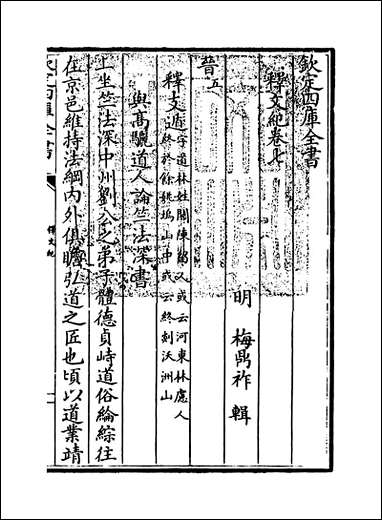 欽定四庫全書
釋文紀卷七
明 梅鼎祚 輯
晉五
釋支遁
字道林姓關陳留人或云河東林慮人
終於餘姚塢山中或云終剡沃洲山
與高驪道人論竺法深書
上坐竺法深中州劉公之弟子體德貞峙道俗綸綜往
在京邑維持法綱內外俱瞻弘道之匠也頃以道業靖
欽定四庫全書
釋文紀
一